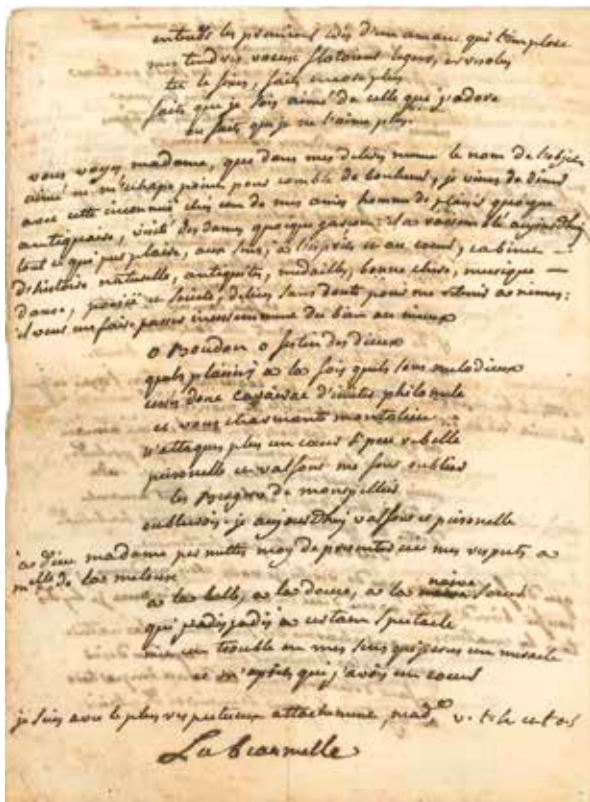 entends les premiers cris d'un amant qui t'implore
mes tendres voeux flotoient legers, irresolus
tu le peux, fais encore plus
faits que je sois aimé de celle que j'adore
ou faits que je ne l'aime plus.
vous voyez, madame, que dans mes delires meme le nom de l'objet
aimé ne m'echape point pour comble de bonheur, je viens de diner
avec cette inconnue chez un de mes amis homme de plaisir quoique
antiquaire, visité des dames quoique gascon: il a rassemblé aujourdhuy
tout ce qui peut plaire, aux sens, a l'esprit et au coeur, cabinet
d'histoire naturelle, antiquités, medailles, bonne chere, musique
danse, poesie et societé, delices sans doute pour me retenir a nimes:
il vous en faire passer du bien au mieux
o Boudon o festin des dieux
quels plaisirs a la fois quels sons melodieux
donc d'imiter philomele
et vous charmante montalieu
n'attaquez plus un coeur rebelle
peironelle et valsons me sont oubliés
les de montpellier
oublirois-je aujourdhuy valsons et peironelle
a dieu madame permettes moy de presenter icy mes respects a
melle de la meleuse
a la belle, a la douce, a la naive soeur
qui jadis, jadis a certain spectacle
mit un trouble en mes sens qui un miracle
et m'aprit que j'avois un coeur
je suis avec le plus respectueux attachement, made v. t. h. et t. o. s.
La Beaumelle